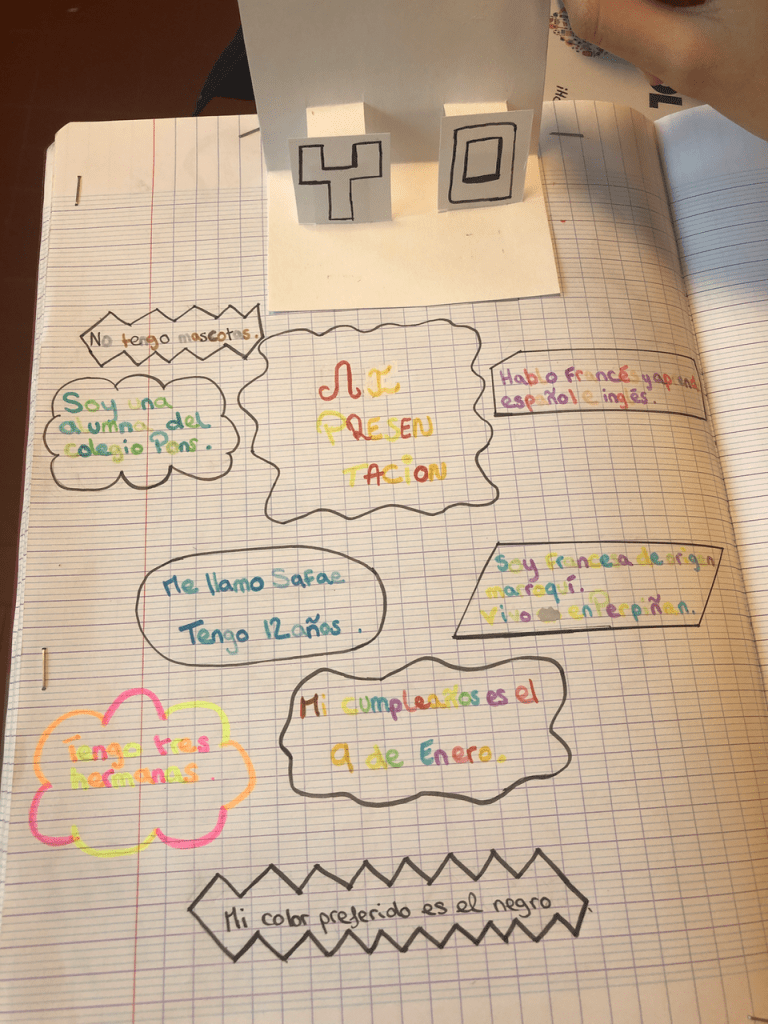 YO
No tengo mascotas.
MI
PRESEN
TACION
Hablo Francés y aprend
español e inglés.
Soy una
alumna del
colegio Pons.
Me llamo Safae
Tengo 12 años.
Soy francesa de origen
maroquí.
vivo en Perpiñan.
Mi cumpleaños es el
9 de Enero.
Tengo tres
hermanas.
Mi color preferido es el negro